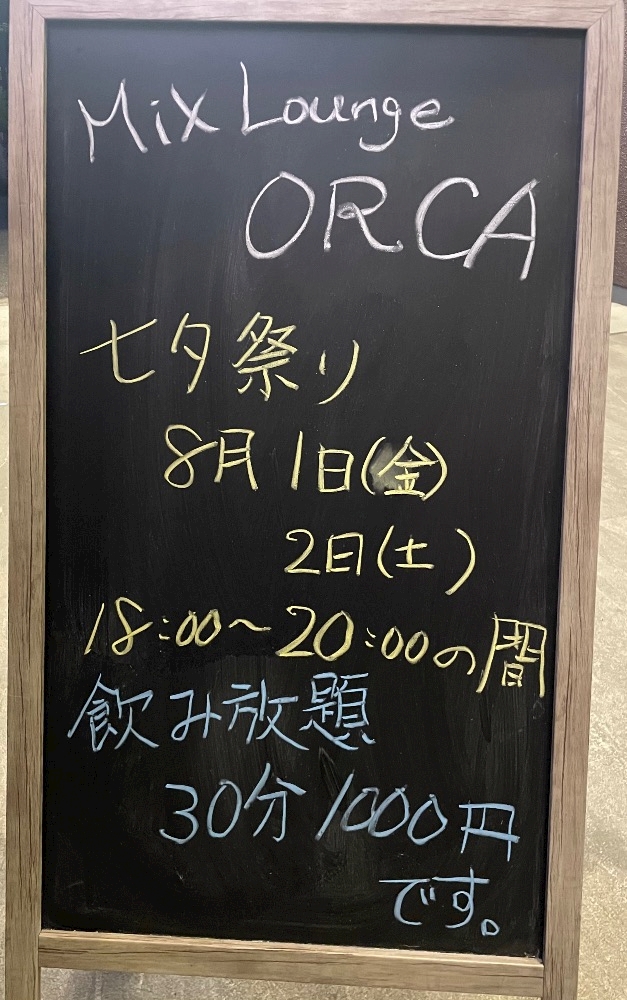 Mix Lounge
ORCA
七夕祭り
8月1日(金)
2日(土)
18:00~20:00の間
飲み放題
30分1000円
です。